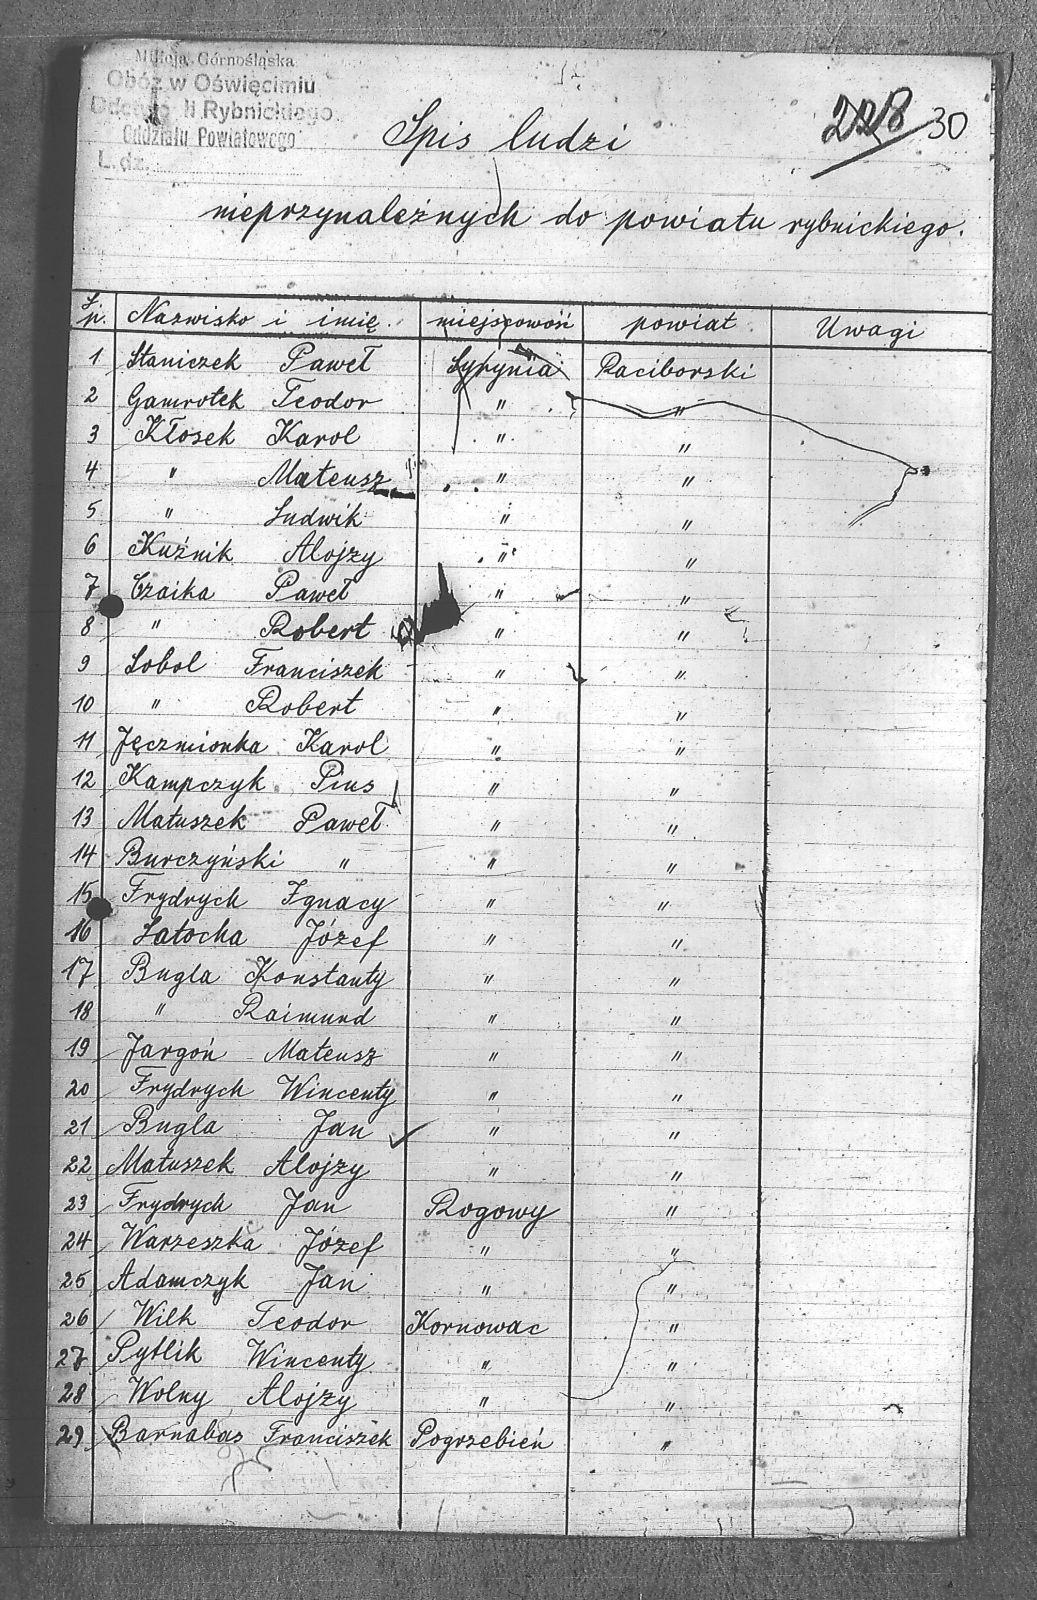 Milicja Górnośląska
Obóz w Oświęcimiu
II Rybnickiego
Oddziału Powiatowego
L. dz.
228 30
Spis ludzi
nieprzynależnych do powiatu rybnickiego.
Lp. Nazwisko i imię. miejscowość powiat Uwagi
1 Staniczek Paweł Syrynia Raciborski
2 Gamrotek Teodor " "
3 Kłosek Karol " "
4 " Mateusz " "
5 " Ludwik " "
6 Kuźnik Alojzy " "
7 Czaika Paweł " "
8 " Robert " "
9 Sobol Franciszek " "
10 " Robert " "
11 Jęczmionka Karol " "
12 Kampczyk Pius " "
13 Matuszek Paweł " "
14 Burczyński " " "
15 Frydrych Ignacy " "
16 Łatocha Józef " "
17 Bugla Konstanty " "
18 " Raimund " "
19 Jargoń Mateusz " "
20 Frydrych Wincenty " "
21 Bugla Jan " "
22 Matuszek Alojzy " "
23 Frydrych Jan Rogowy "
24 Warzeszka Józef " "
25 Adamczyk Jan " "
26 Wilk Teodor Kornowac "
27 Pytlik Wincenty " "
28 Wolny Alojzy " "
29 Barnabas Franciszek Pogrzebień "